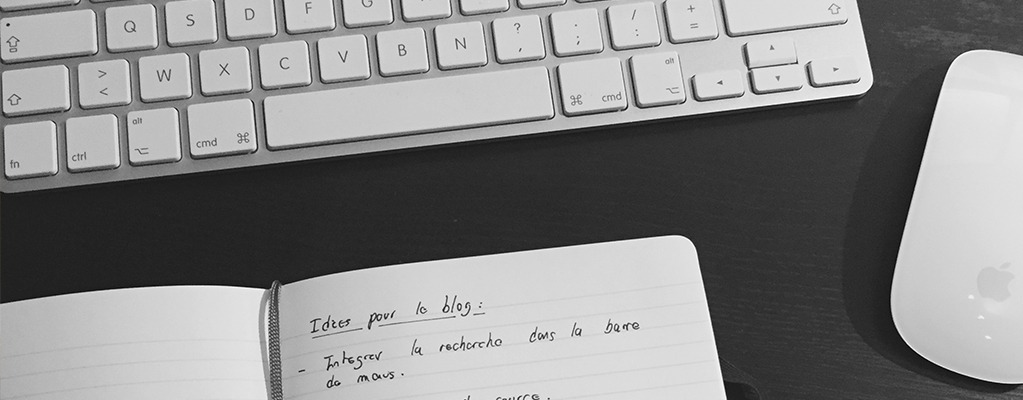 Q S D F G
> W X C V B N ? . / +
< , ; : =
alt alt
fn ctrl ⌥ cmd ⌘ ⌘ cmd ⌥
Idées pour le blog :
- Intégrer la recherche dans la barre
de menus.